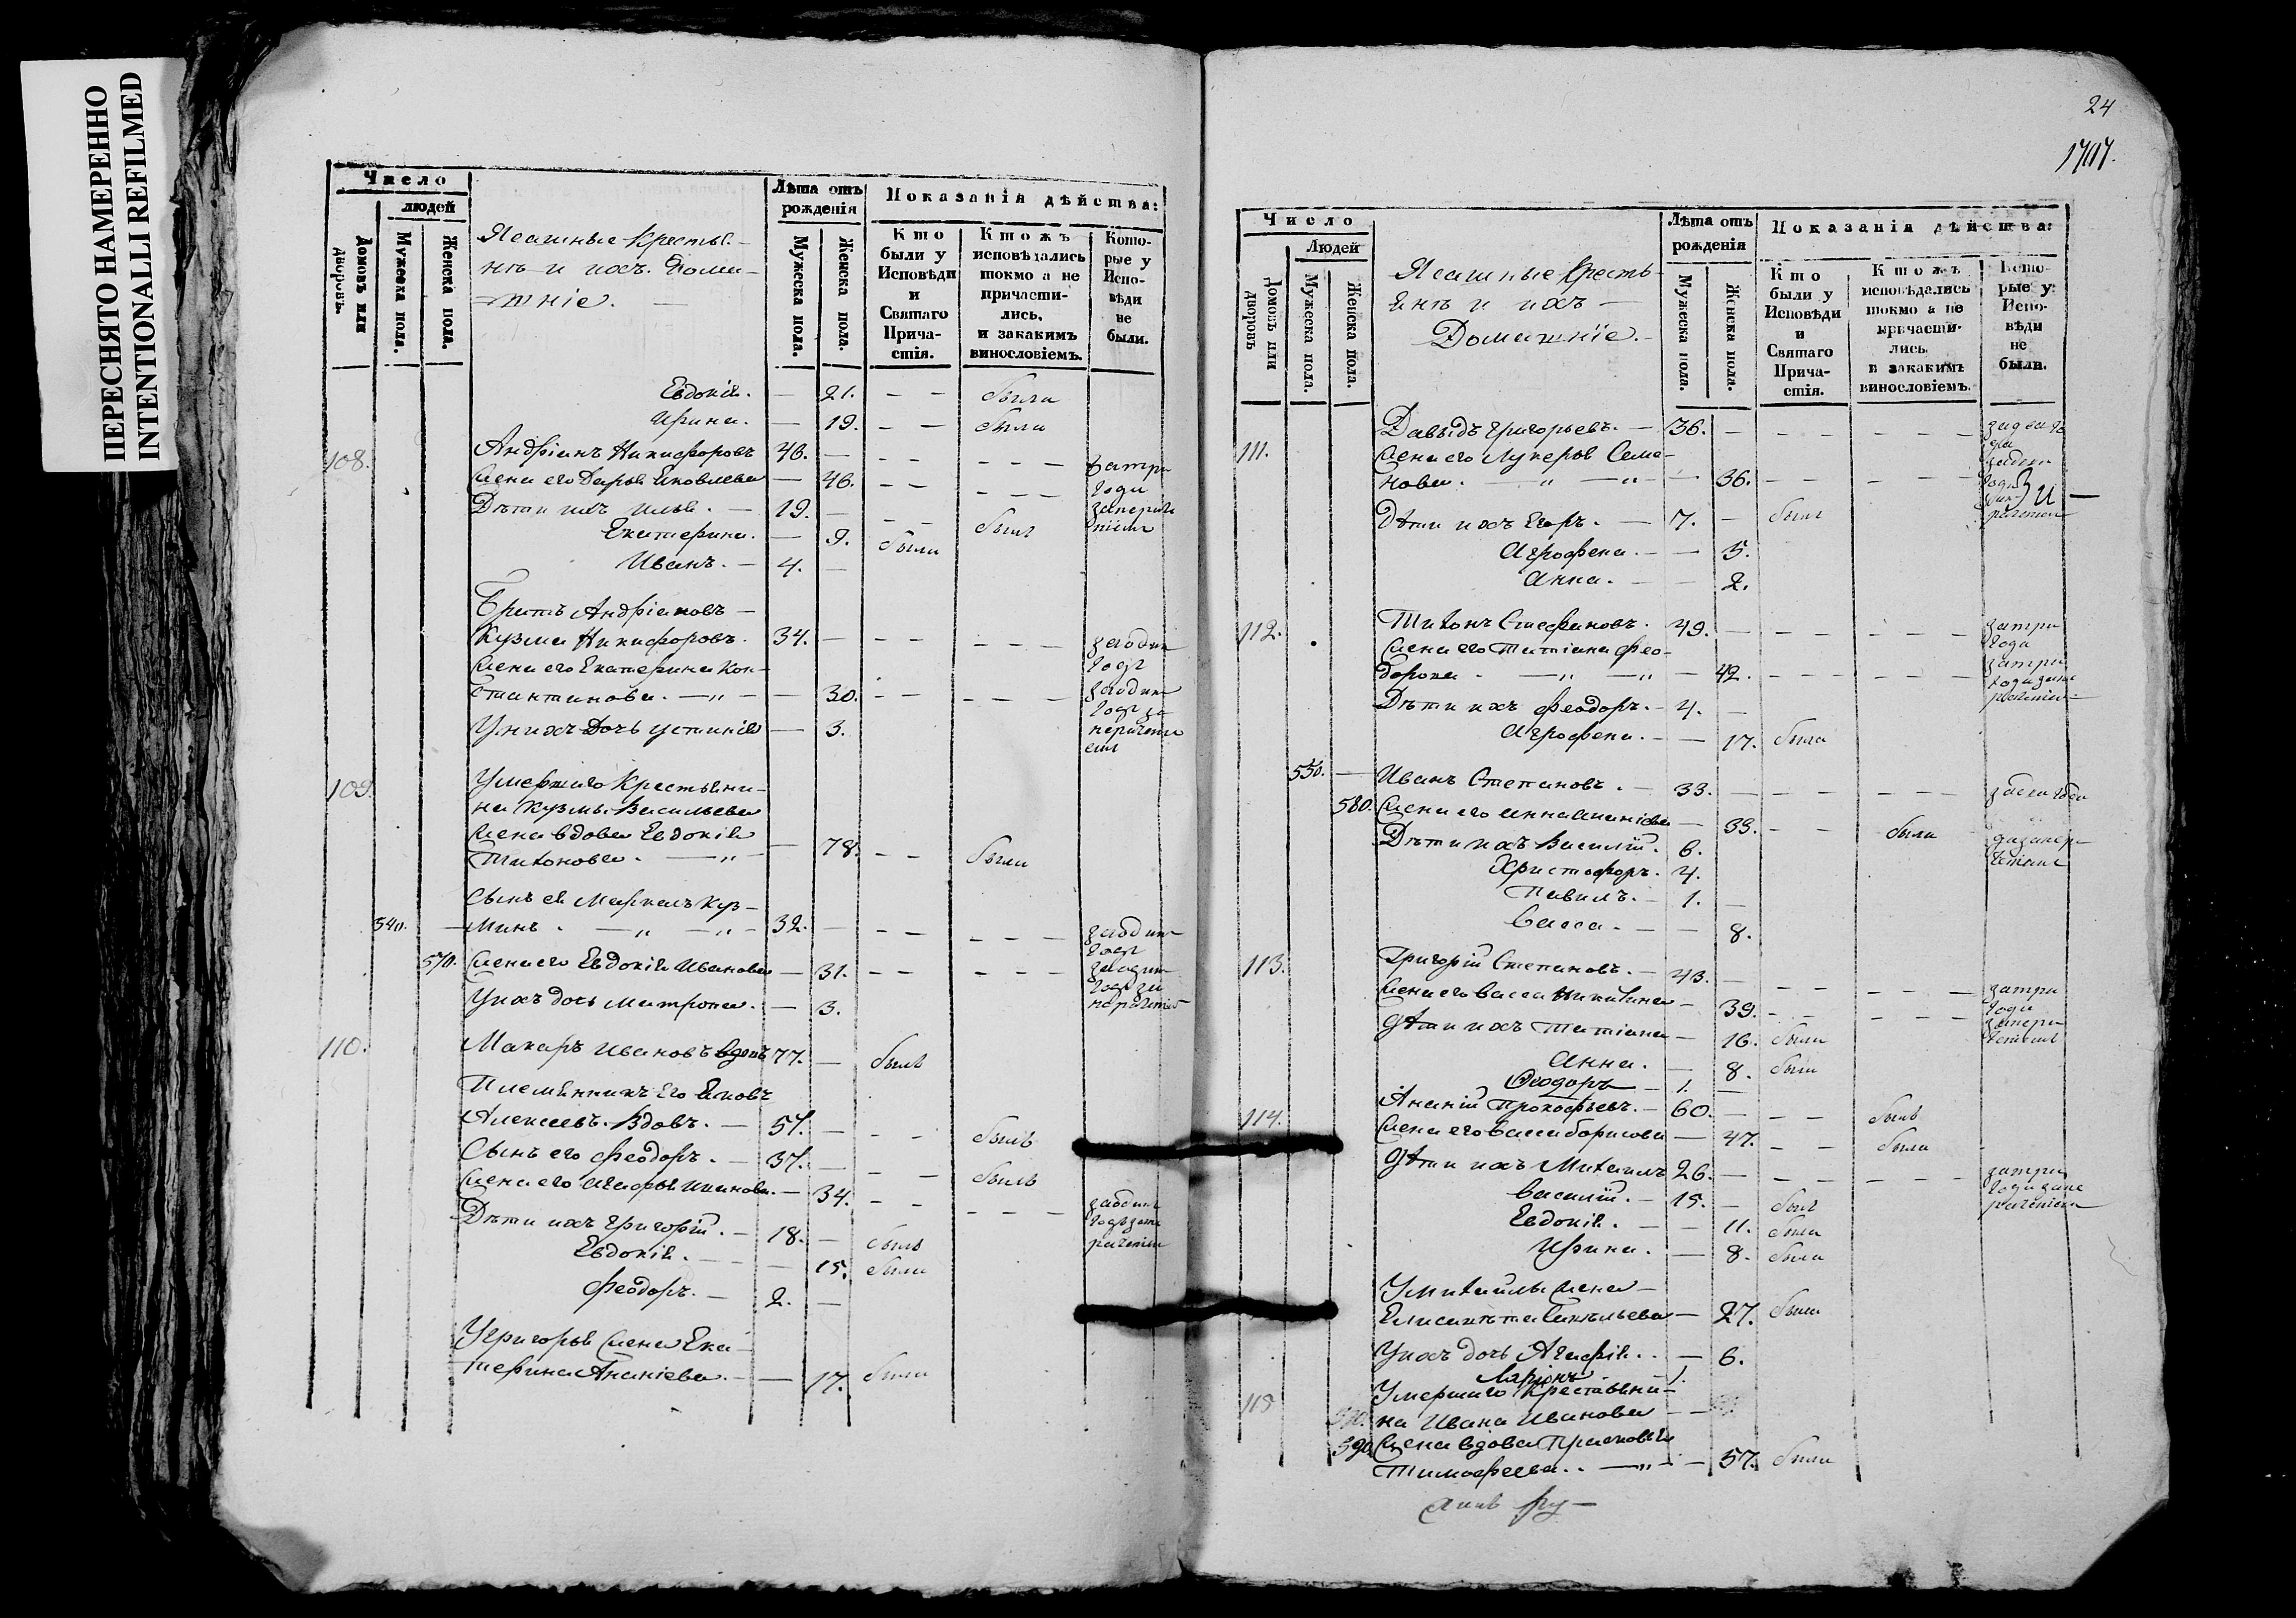 ПЕРЕСНЯТО НАМЕРЕННО
INTENTIONALLI REFILMED
Число
людей
Домовъ или дворовъ.
Мужеска пола.
Женска пола.
Ясашные Крестья-
нѣ и ихъ Дома-
шніе.
Лѣта отъ рожденія
Мужеска пола.
Женска пола.
Показанія дѣйства:
Кто были у Исповѣди и Святаго Причастія.
Ктожъ исповѣдались токмо а не причастились, и закакимъ винословіемъ.
Которые у Исповѣди не были.
Евдокія. — 21. — — была
Ирина. — 19. — — была
108. Андріанъ Никифоровъ 46. — — — — — — затри
Жена его Дарья Яковлева — 46. — — — — — года
Дѣти ихъ Илья. — 19. — — — былъ
Екатерина. — 9. была
Иванъ. — 4. —
Братъ Андріановъ —
Кузма Никифоровъ. 34. — — — — — — заодин
Жена его Екатерина Кон- годъ
стантинова. — „ — — 30. — — — — — заодин
У нихъ Дочь Устинія — 3.
109. Умершаго Крестьяни-
на Кузмы Васильева
Жена вдова Евдокія
Тихонова. — „ — — 78. — — была
Сынъ ея Маркелъ Куз-
540. — минъ. — „ — „ — 32. — — — — — — заодин
годъ
570. Жена его Евдокія Иванова — 31. — — — — —
У ихъ дочь Матрона. — 3.
110. Макаръ Ивановъ вдовъ 77. — былъ
Племянникъ Его Яковъ
Алексеевъ. Вдовъ. — 57. — — — былъ
Сынъ его Феодоръ. — 37. — — — былъ
Жена его Агафья Иванова. — 34. — — — — — заодин
Дѣти ихъ Григорій. — 18. — былъ
Евдокія. — — 15. была
Феодоръ. — 2. —
У Григорья Жена Ека-
терина Ананіева. — — 17. была
24
1707.
Число
Людей
Домовъ или дворовъ
Мужеска пола.
Женска пола.
Ясашные Кресть-
янѣ и ихъ —
Домашніе. —
Лѣта отъ рожденія
Мужеска пола.
Женска пола.
Показанія дѣйства:
Кто были у Исповѣди и Святаго Причастія.
Ктожъ исповѣдались токмо а не причастились и закакимъ винословіемъ.
Которые у Исповѣди не были.
111. Давыдъ Григорьевъ. — 36. — — — — — —
Жена его Лукерья Семе-
нова. — „ — „ — — 36. — — — — —
Дѣти ихъ Егоръ. — 7. — былъ
Агрофена. — — 5.
Анна. — — 2.
112. Тихонъ Стефановъ. 49. — — — — — — затри
Жена его Татіана Фео- года
дорова. — „ — „ — 42. — — — — — затри
Дѣти ихъ Феодоръ. — 4. —
Агрофена. — — 17. была
550. — Иванъ Степановъ. — 33. — — — — — —
580. Жена его Анна Ананіева — 33. — — была
Дѣти ихъ Василій. 6.
Христофоръ. 4.
Павилъ. — 1. —
Васса. — — 8.
113. Григорій Степановъ. — 43. — — — — — — затри
Жена его Васса Никитина — 39. — — — — — года
Дѣти ихъ Татіана — 16. была
Анна. — 8. была
Ѳеодоръ — 1. —
114. Ананій Прокофьевъ. — 60. — — — былъ
Жена его Васса Борисова — 47. — — была
Дѣти ихъ Михаилъ 26. — — — — — — затри
Василій. — 15. — былъ
Евдокія. — — 11. была
Ирина. — — 8. была
У Михаилы Жена —
Елисавѣта Савельева — 27. была
У ихъ дочь Агафія. . — 6.
Ларіонъ 1.
115 Умершаго Крестьяни-
на Ивана Иванова — —
590. Жена вдова Прасковья
Тимофеева. . — „ — — 57. была